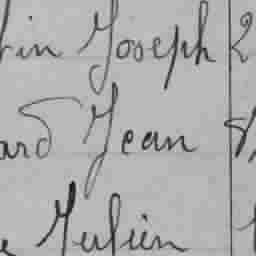 in Joseph 2
ard Jean
e Julien